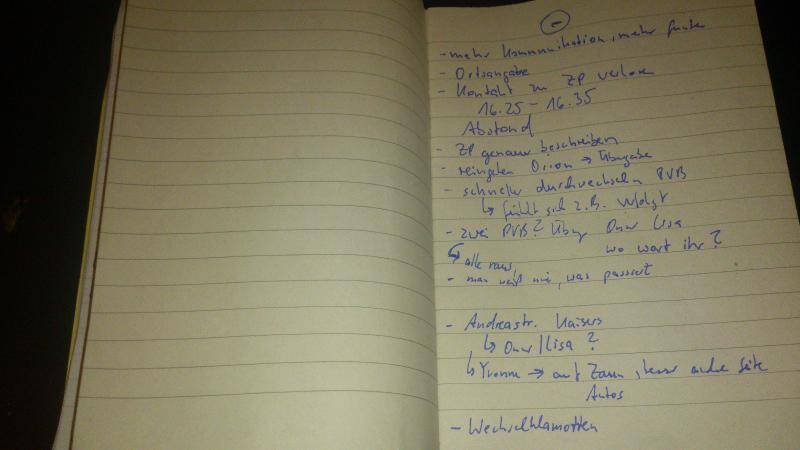 -
- mehr Kommunikation, mehr funken
- Ortsangabe
- Kontakt zu ZP verloren
16.25 - 16.35
Abstand
- ZP genauer beschreiben
- reingehen Orion → Übergabe
- schneller durchwechseln PVB
↳ fühlt sich z.B. verfolgt
- zwei PVB? Übung Omar Lisa
wo wart ihr?
↳ alle raus,
- man weiß nie, was passiert
- Andreastr. Kaisers
↳ Omar/Lisa?
↳ Yvonne → auf Zaun, besser andere Seite
Autos
- Wechselklamotten